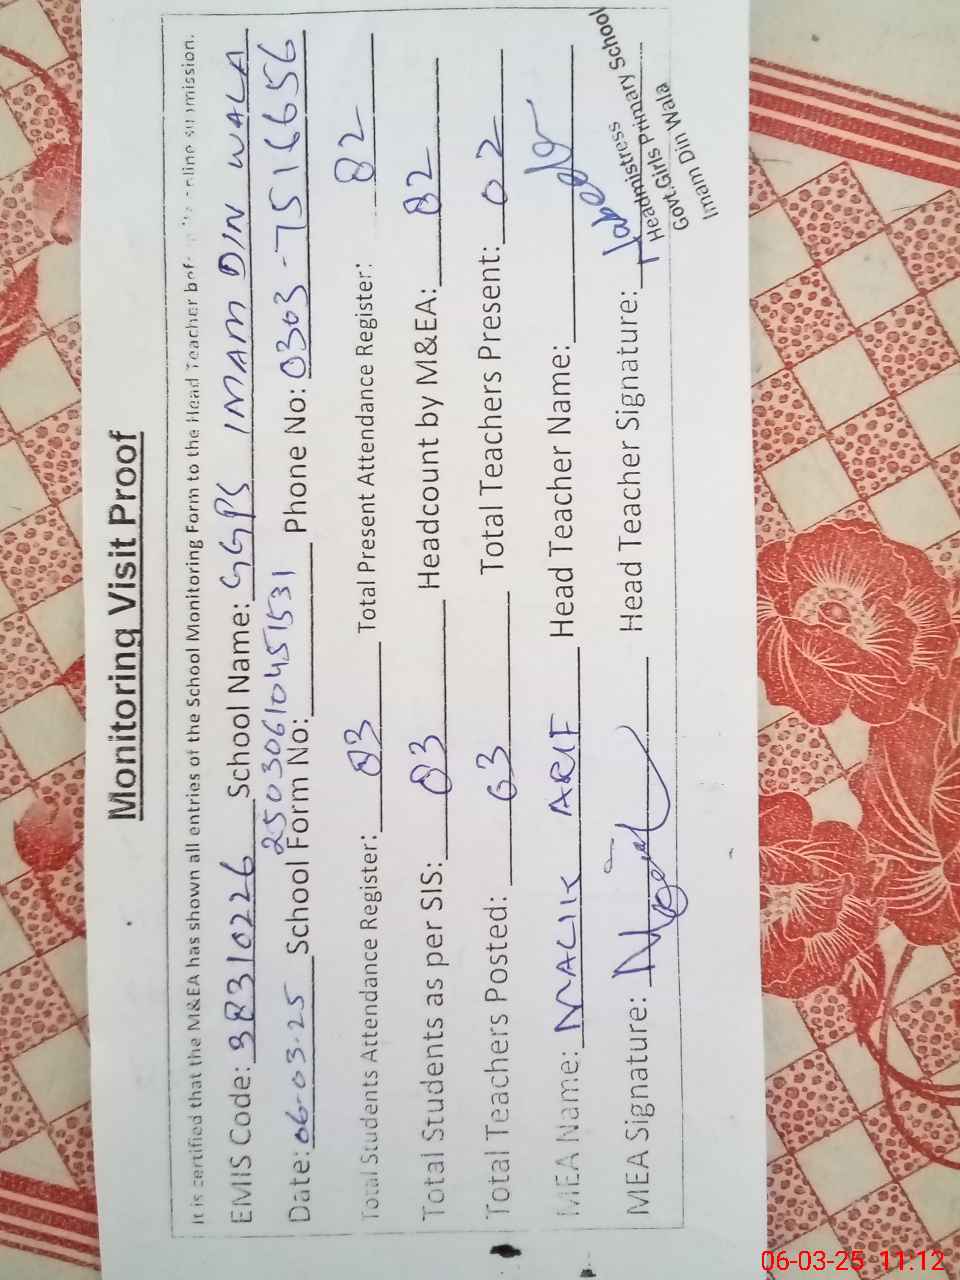 Monitoring Visit Proof
It is certified that the M&EA has shown all entries of the School Monitoring Form to the Head Teacher before online submission.
EMIS Code: 38310226 School Name: GGPS IMAM DIN WALA
Date: 06-03-25 School Form No: 25030610451531 Phone No: 0303-7516656
Total Students Attendance Register: 83 Total Present Attendance Register: 82
Total Students as per SIS: 83 Headcount by M&EA: 82
Total Teachers Posted: 03 Total Teachers Present: 02
MEA Name: MALIK ARIF Head Teacher Name:
MEA Signature: Head Teacher Signature:
Headmistress
Govt. Girls Primary School
Imam Din Wala
06-03-25 11:12